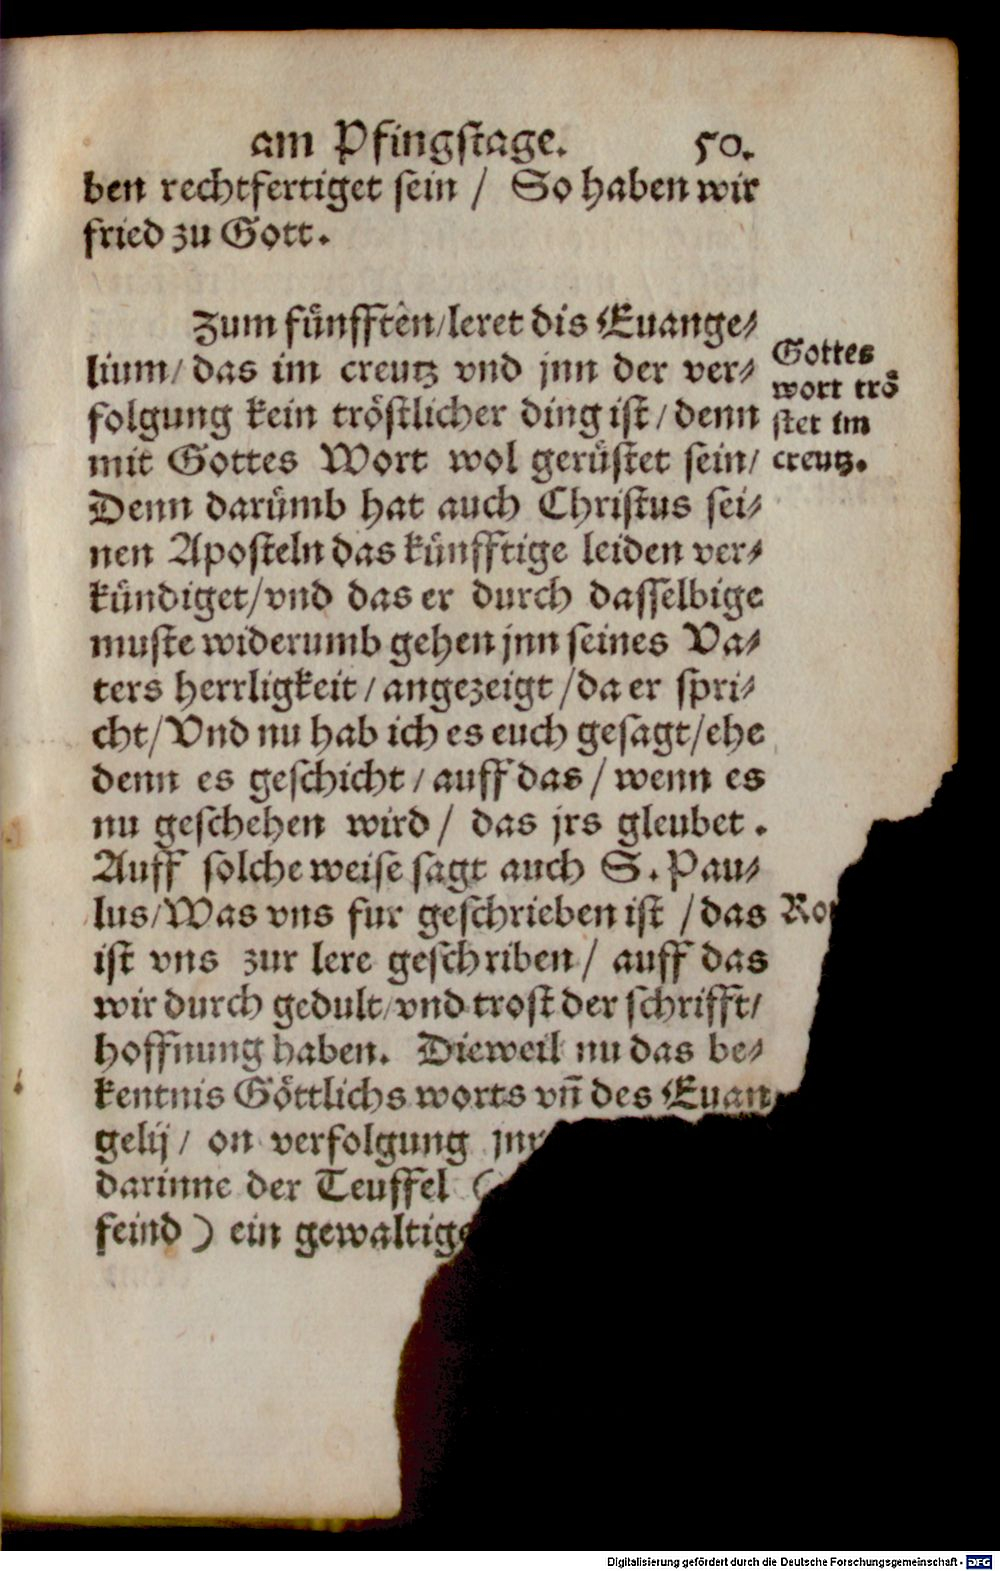 am Pfingstage. 50.
ben rechtfertiget sein / So haben wir
fried zu Gott.
Zum fünfften/leret dis Euange-
lium/ das im creutz vnd jnn der ver-
folgung kein tröstlicher ding ist/denn
mit Gottes Wort wol gerüstet sein/
Denn darümb hat auch Christus sei-
nen Aposteln das künfftige leiden ver-
kündiget/vnd das er durch dasselbige
muste widerumb gehen jnn seines Va-
ters herrligkeit/angezeigt/da er spri-
cht/Vnd nu hab ich es euch gesagt/ehe
denn es geschicht/auff das/wenn es
nu geschehen wird/ das jrs gleubet.
Auff solche weise sagt auch S. Pau-
lus/Was vns fur geschrieben ist /das
ist vns zur lere geschriben/ auff das
wir durch gedult/vnd trost der schrifft/
hoffnung haben. Dieweil nu das be-
kentnis Göttlichs worts vñ des Euan
gelij/ on verfolgung
darinne der Teuffel (
feind) ein
Gottes
wort trö
stet im
creutz.
Digitalisierung gefördert durch die Deutsche Forschungsgemeinschaft - DFG